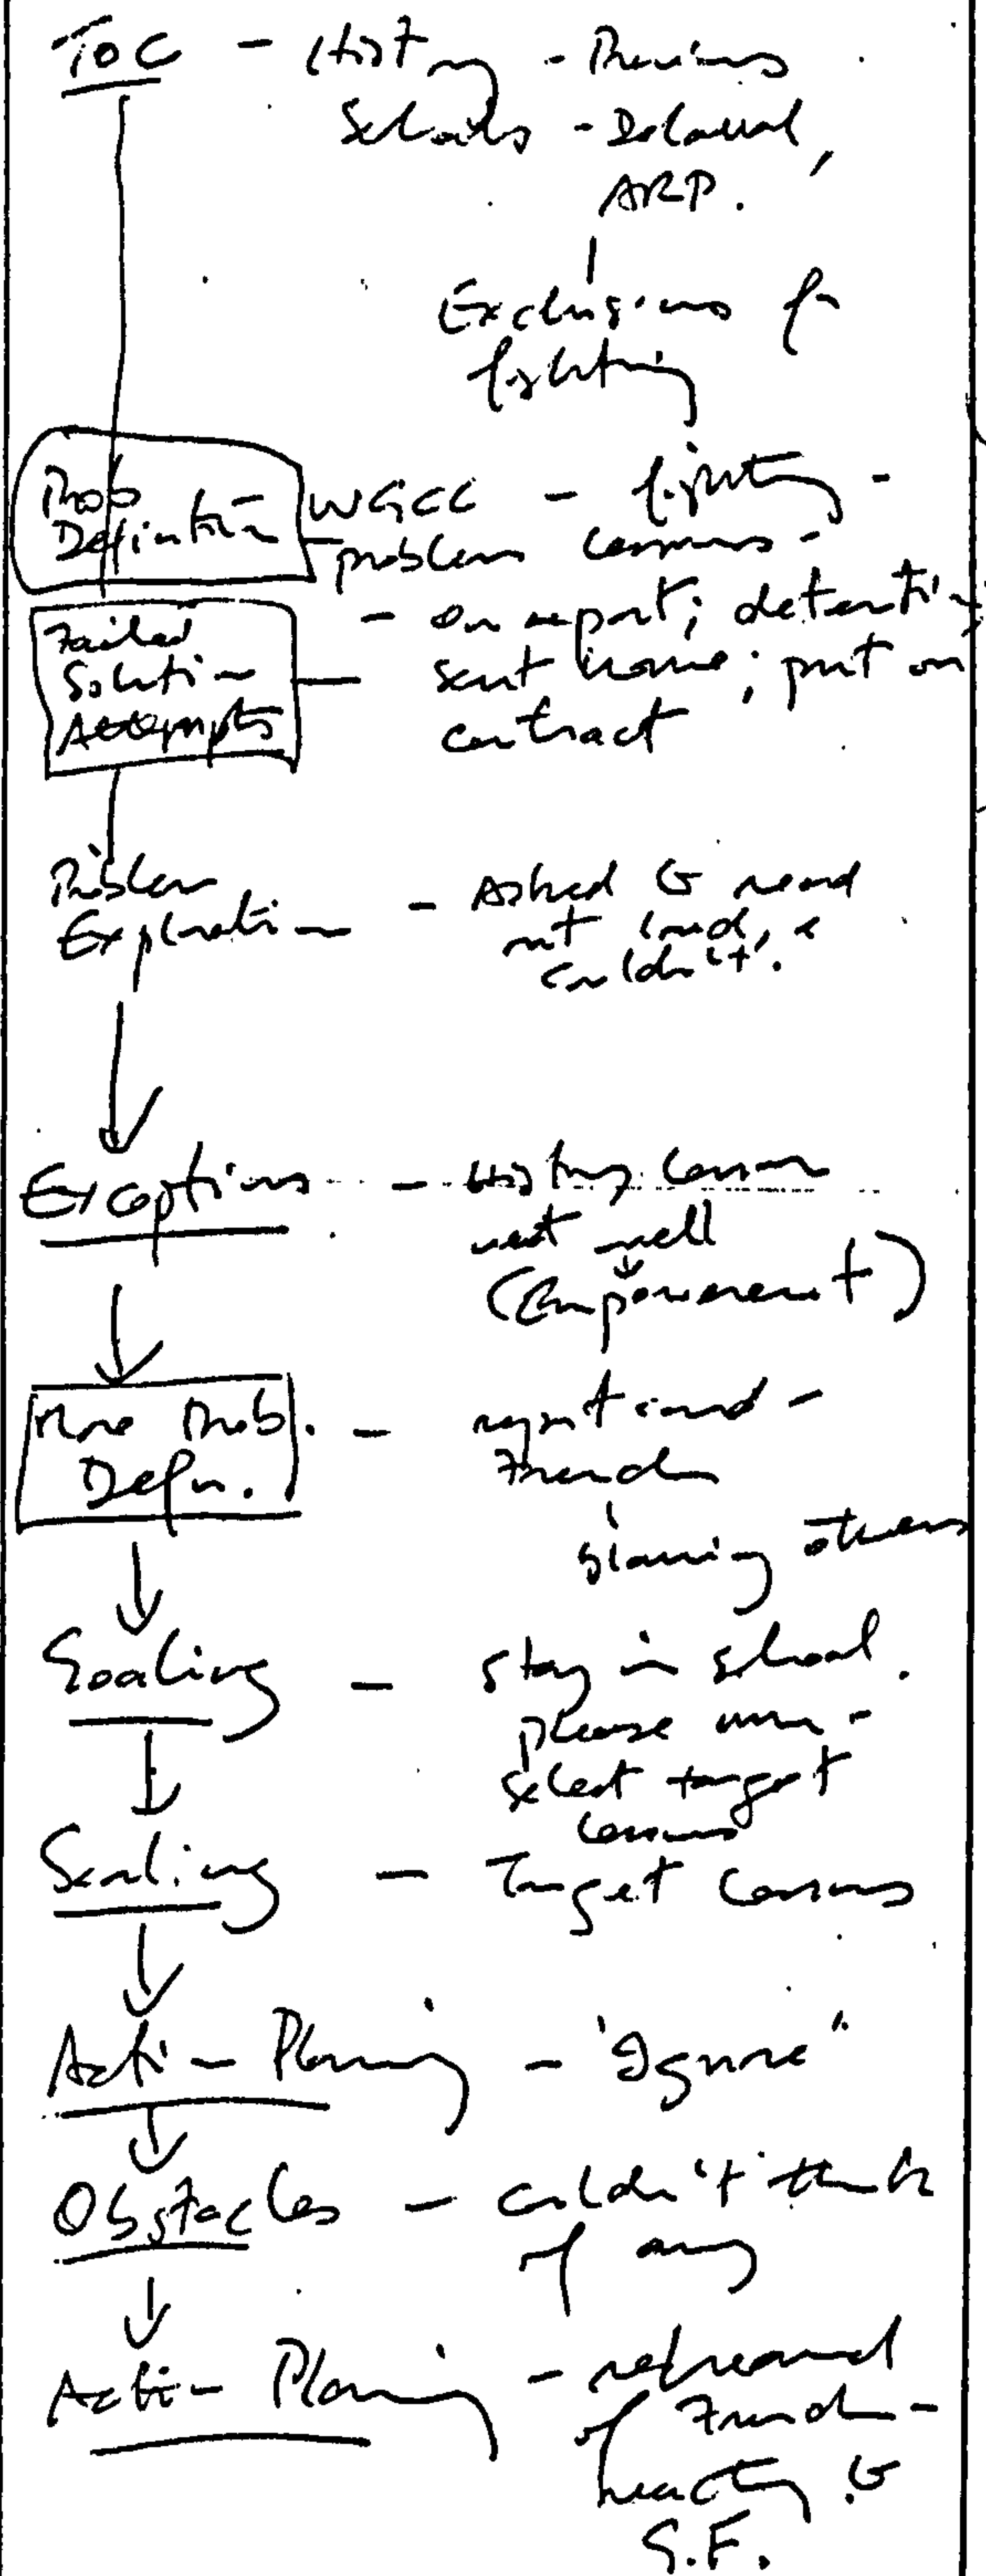 ToC - History - Previous
Schools - Delaual,
ARP.
Exclusions for
fighting
Prob
Definition
WGCC - fighting -
problem lessons -
Failed
Solution
Attempts
- on report; detention;
sent home; put on
contract
Problem
Exploration - Asked to read
out loud, &
couldn't.
Exceptions - History lesson
went well
(Empowerment)
More Prob.
Defn.
- report card -
French
blaming others
Goaling - stay in school.
please mum -
select target
lessons
Scaling - Target lessons
Action Planning - 'Ignore"
Obstacles - couldn't think
of any
Action Planning - rehearsal
of French -
reacting to
S.F.